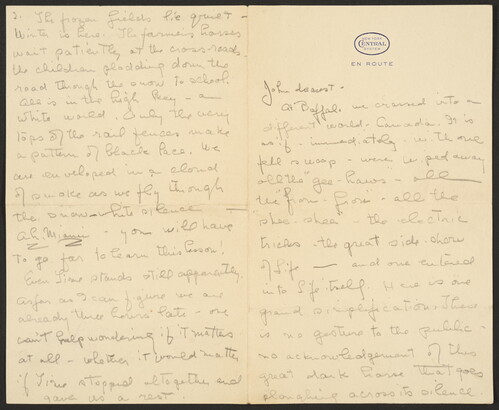 NEW YORK
CENTRAL
SYSTEM
EN ROUTE
John dearest -
At Buffalo we crossed into a
different world - Canada. It is
as if - immediately - with one
fell swoop - were wiped away
all the "gee-haws" - all
the - all the
- the electric
tricks - the great side-show
of Life — and one entered
into Life itself. Here is one
grand simplification. There
is no gesture to the public -
no acknowledgement of this
great dark horse that goes
ploughing across its silence.
2. The frozen fields lie quiet -
White is here. The farmer's horses
wait patiently at the cross-roads -
the children plodding down the
road through the snow to school.
All is in the high key - a
white world. Only the very
tops of the rail fences make
a pattern of black lace. We
are enveloped in a cloud
of smoke as we fly through
the snow-white silence —
Ah, - you will have
to go far to learn this lesson!
Even Time stands still apparently.
As far as I can figure we are
already three hours late - one
can't help wondering if it matters
at all - whether it would matter
if Time stopped altogether and
gave us a rest.